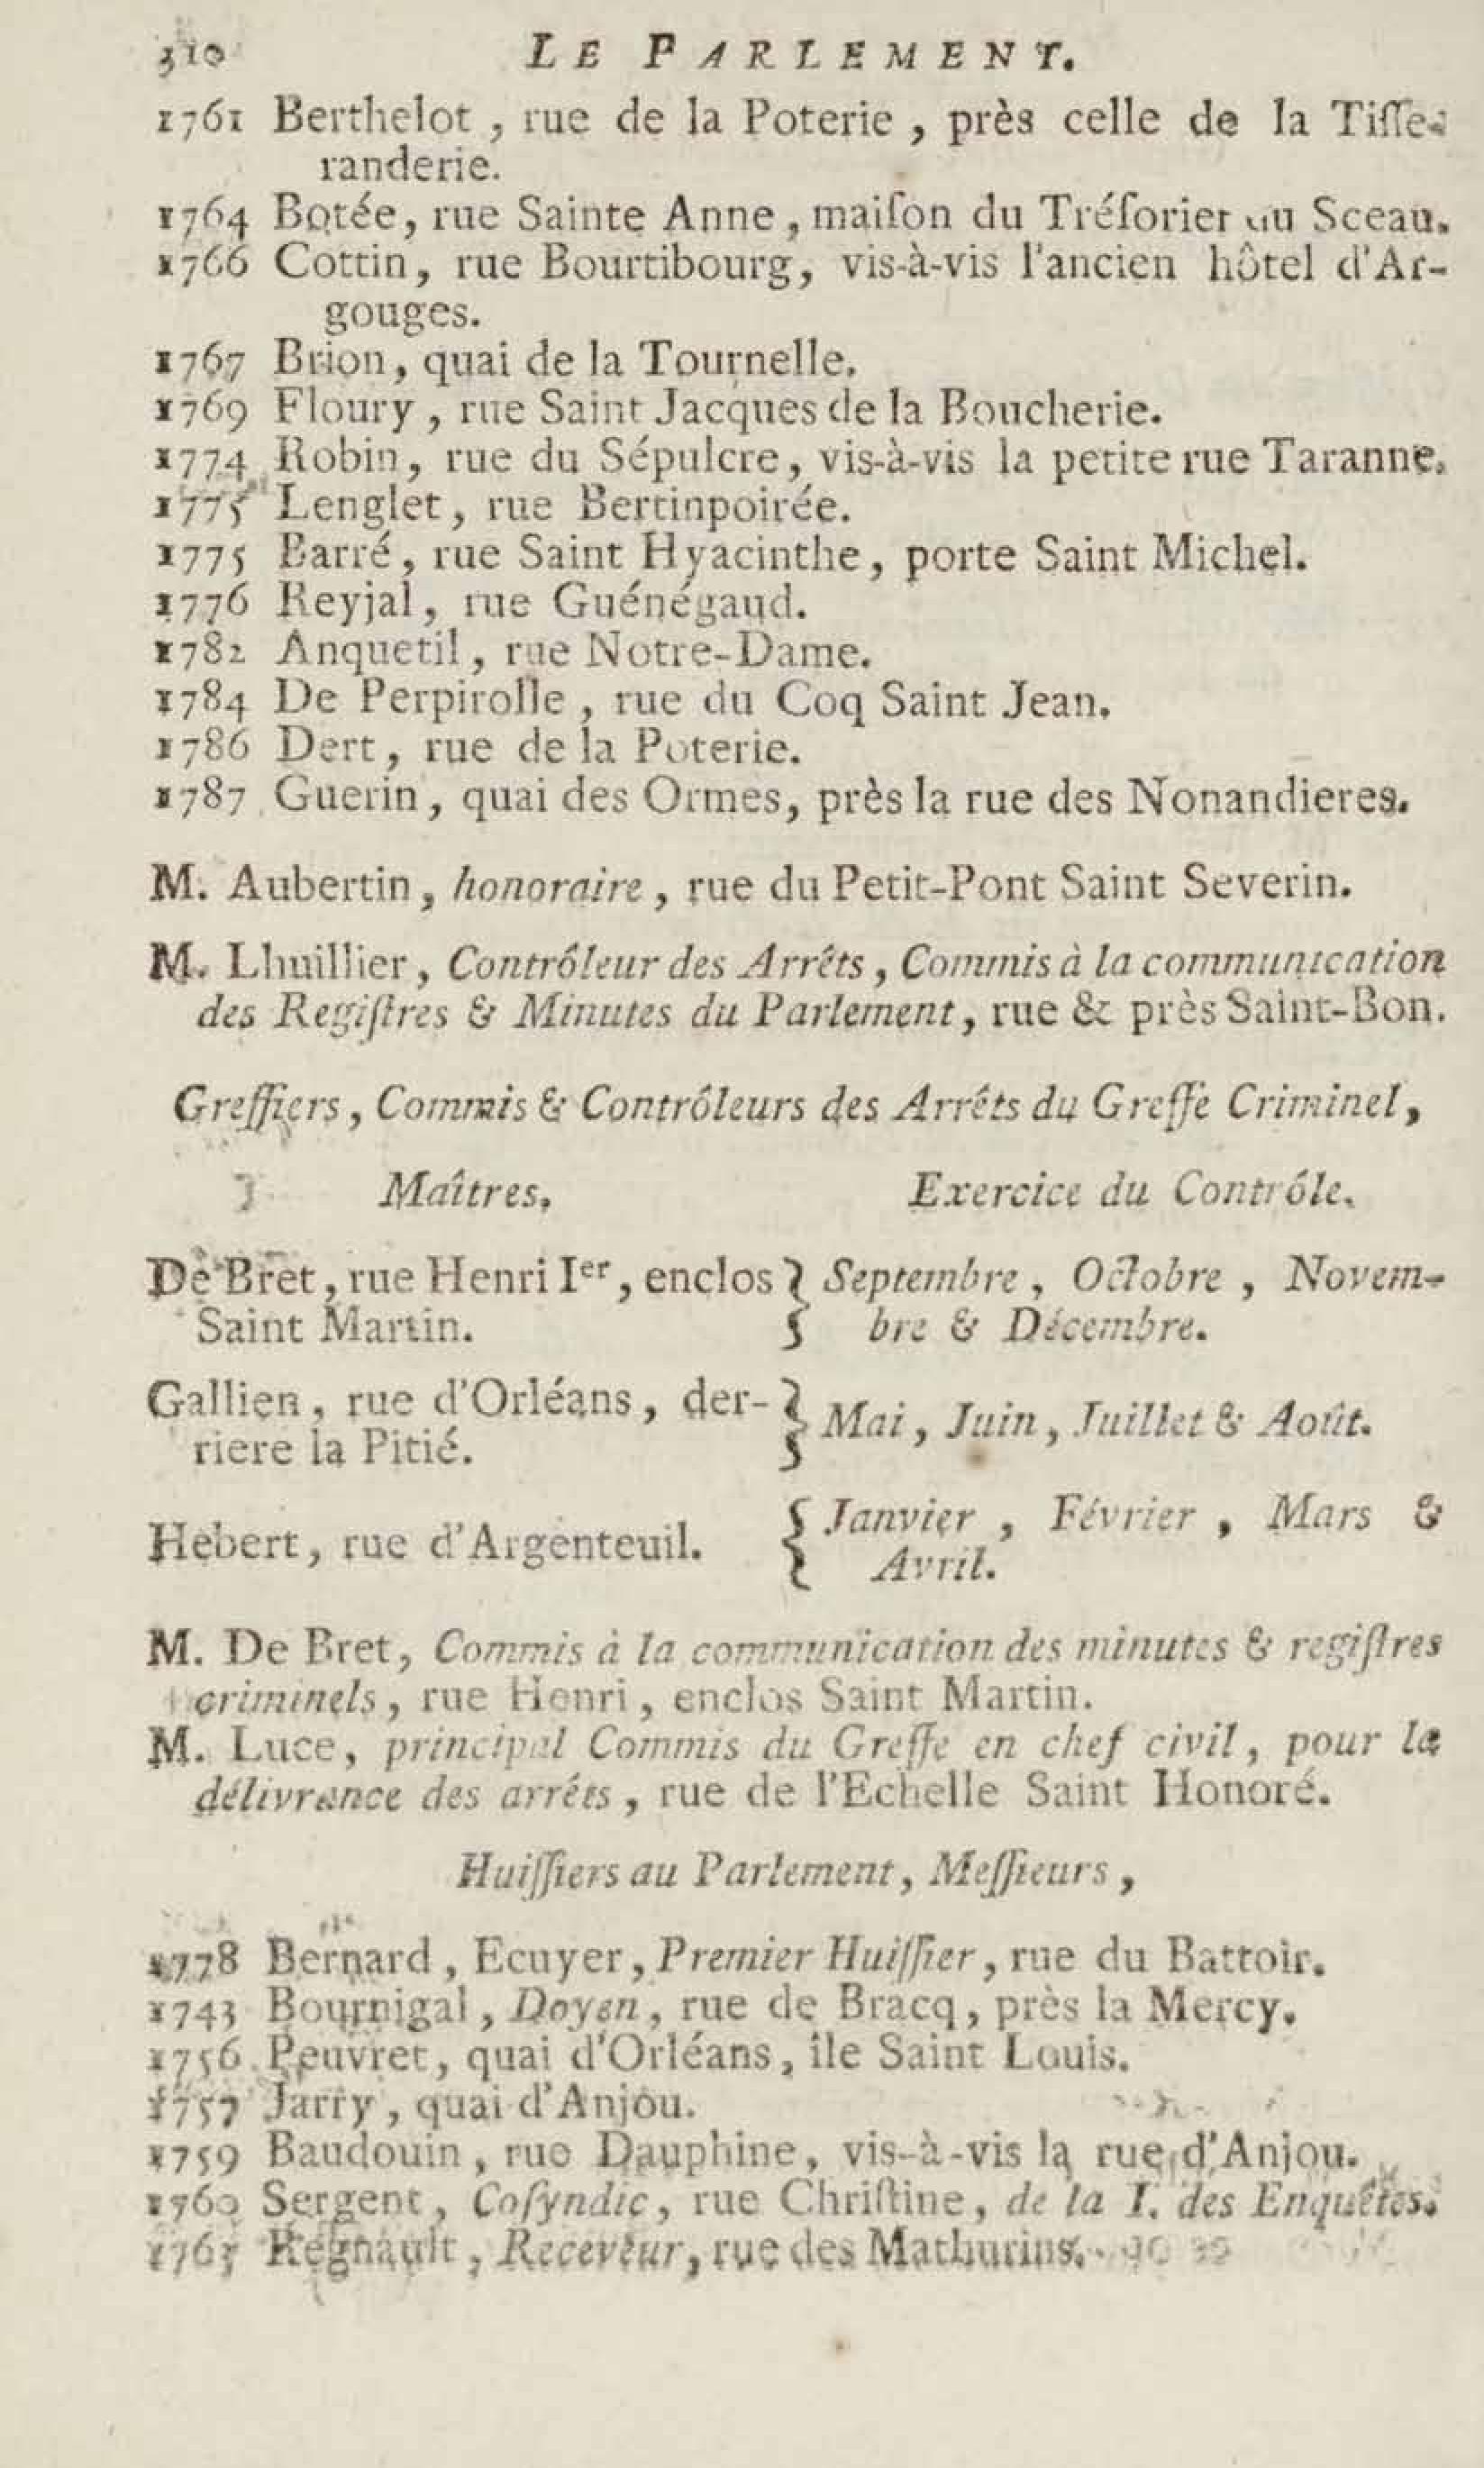 310 LE PARLEMENT.
1761 Berthelot , rue de la Poterie , près celle de la Tiſſe-
randerie.
1764 Botée, rue Sainte Anne , maiſon du Tréſorier du Sceau.
1766 Cottin, rue Bourtibourg, vis-à-vis l'ancien hôtel d'Ar-
gouges.
1767 Brion, quai de la Tournelle.
1769 Floury , rue Saint Jacques de la Boucherie.
1774 Robin, rue du Sépulcre, vis-à-vis la petite rue Taranne.
1775 Lenglet, rue Bertinpoirée.
1775 Barré, rue Saint Hyacinthe, porte Saint Michel.
1776 Reyjal, rue Guénégaud.
1782 Anquetil, rue Notre-Dame.
1784 De Perpirolle , rue du Coq Saint Jean.
1786 Dert, rue de la Poterie.
1787 Guerin, quai des Ormes, près la rue des Nonandieres.
M. Aubertin, honoraire, rue du Petit-Pont Saint Severin.
M. Lhuillier, Contrôleur des Arrêts, Commis à la communication
des Regiſtres & Minutes du Parlement, rue & près Saint-Bon.
Greffiers, Commis & Contrôleurs des Arrêts du Greffe Criminel,
Maîtres. Exercice du Contrôle.
De Bret, rue Henri Ier, enclos } Septembre, Octobre, Novem-
Saint Martin. bre & Décembre.
Gallien, rue d'Orléans, der- } Mai, Juin, Juillet & Août.
riere la Pitié.
Hebert, rue d'Argenteuil. { Janvier, Février, Mars &
Avril.
M. De Bret, Commis à la communication des minutes & regiſtres
criminels, rue Henri, enclos Saint Martin.
M. Luce, principal Commis du Greffe en chef civil, pour la
délivrance des arrêts, rue de l'Echelle Saint Honoré.
Huiſſiers au Parlement, Meſſieurs,
1778 Bernard, Ecuyer, Premier Huiſſier, rue du Battoir.
1743 Bournigal, Doyen, rue de Bracq, près la Mercy.
1756 Peuvret, quai d'Orléans, île Saint Louis.
1757 Jarry, quai d'Anjou.
1759 Baudouin, rue Dauphine, vis-à-vis la rue d'Anjou.
1760 Sergent, Coſyndic, rue Chriſtine, de la I. des Enquêtes.
Régnault, Receveur, rue des Mathurins.